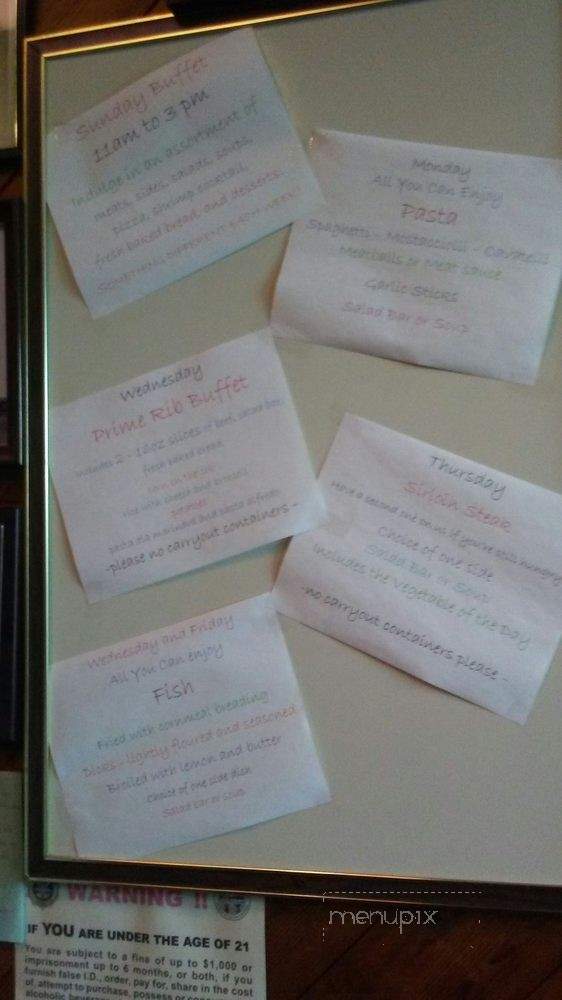 Sunday Buffet
11am to 3 pm
Indulge in an assortment of
meats, sides, salads, soups,
pizza, shrimp cocktail,
fresh baked bread, and desserts.
SOMETHING DIFFERENT EACH WEEK!
Monday
All You Can Enjoy
Pasta
Spaghetti - Mostaccioli - Cavatelli
Meatballs or Meat sauce
Garlic Sticks
Salad Bar or Soup
Wednesday
Prime Rib Buffet
Includes 2 - 16oz slices of beef, salad bar,
fresh baked bread
corn on the cob
rice with cheese and broccoli
potatoes
pasta ala marinara and pasta alfredo
-please no carryout containers -
Thursday
Sirloin Steak
Have a second one on us if you're still hungry
Choice of one side
Salad Bar or Soup
Includes the Vegetable of the Day
-no carryout containers please -
Wednesday and Friday
All You Can enjoy
Fish
Fried with cornmeal breading
- lightly floured and seasoned
Broiled with lemon and butter
Choice of one side dish
Salad bar or soup
WARNING !!
IF YOU ARE UNDER THE AGE OF 21
You are subject to a fine of up to $1,000 or
imprisonment up to 6 months, or both, if you
furnish false I.D., order, pay for, share in the cost
of, attempt to purchase, possess or
alcoholic
menupix